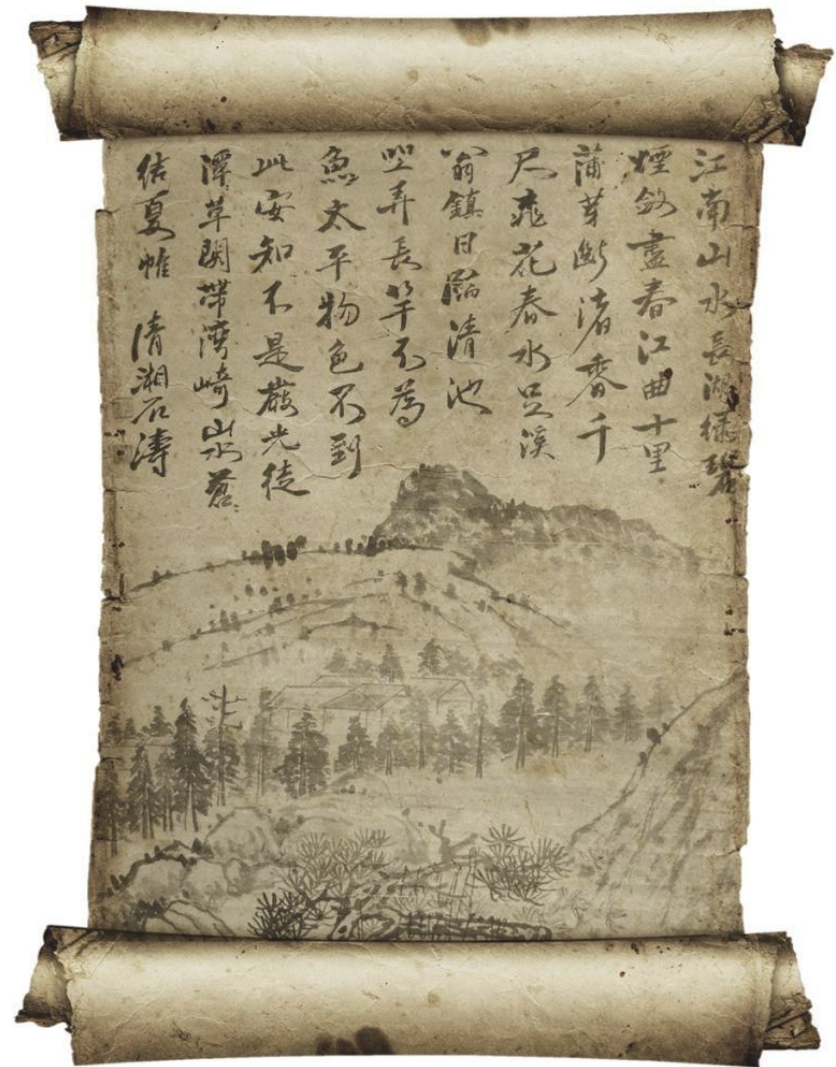 江南山水長湖緑碧
煙斂盡春江曲十里
蒲芽斷渚香千
尺花春水足溪
翁鎮日臨清池
坐弄長竿不為
魚太平物色不到
此安知不是嚴光徒
草帶灣崎山水蒼
結夏帷 清湘石濤